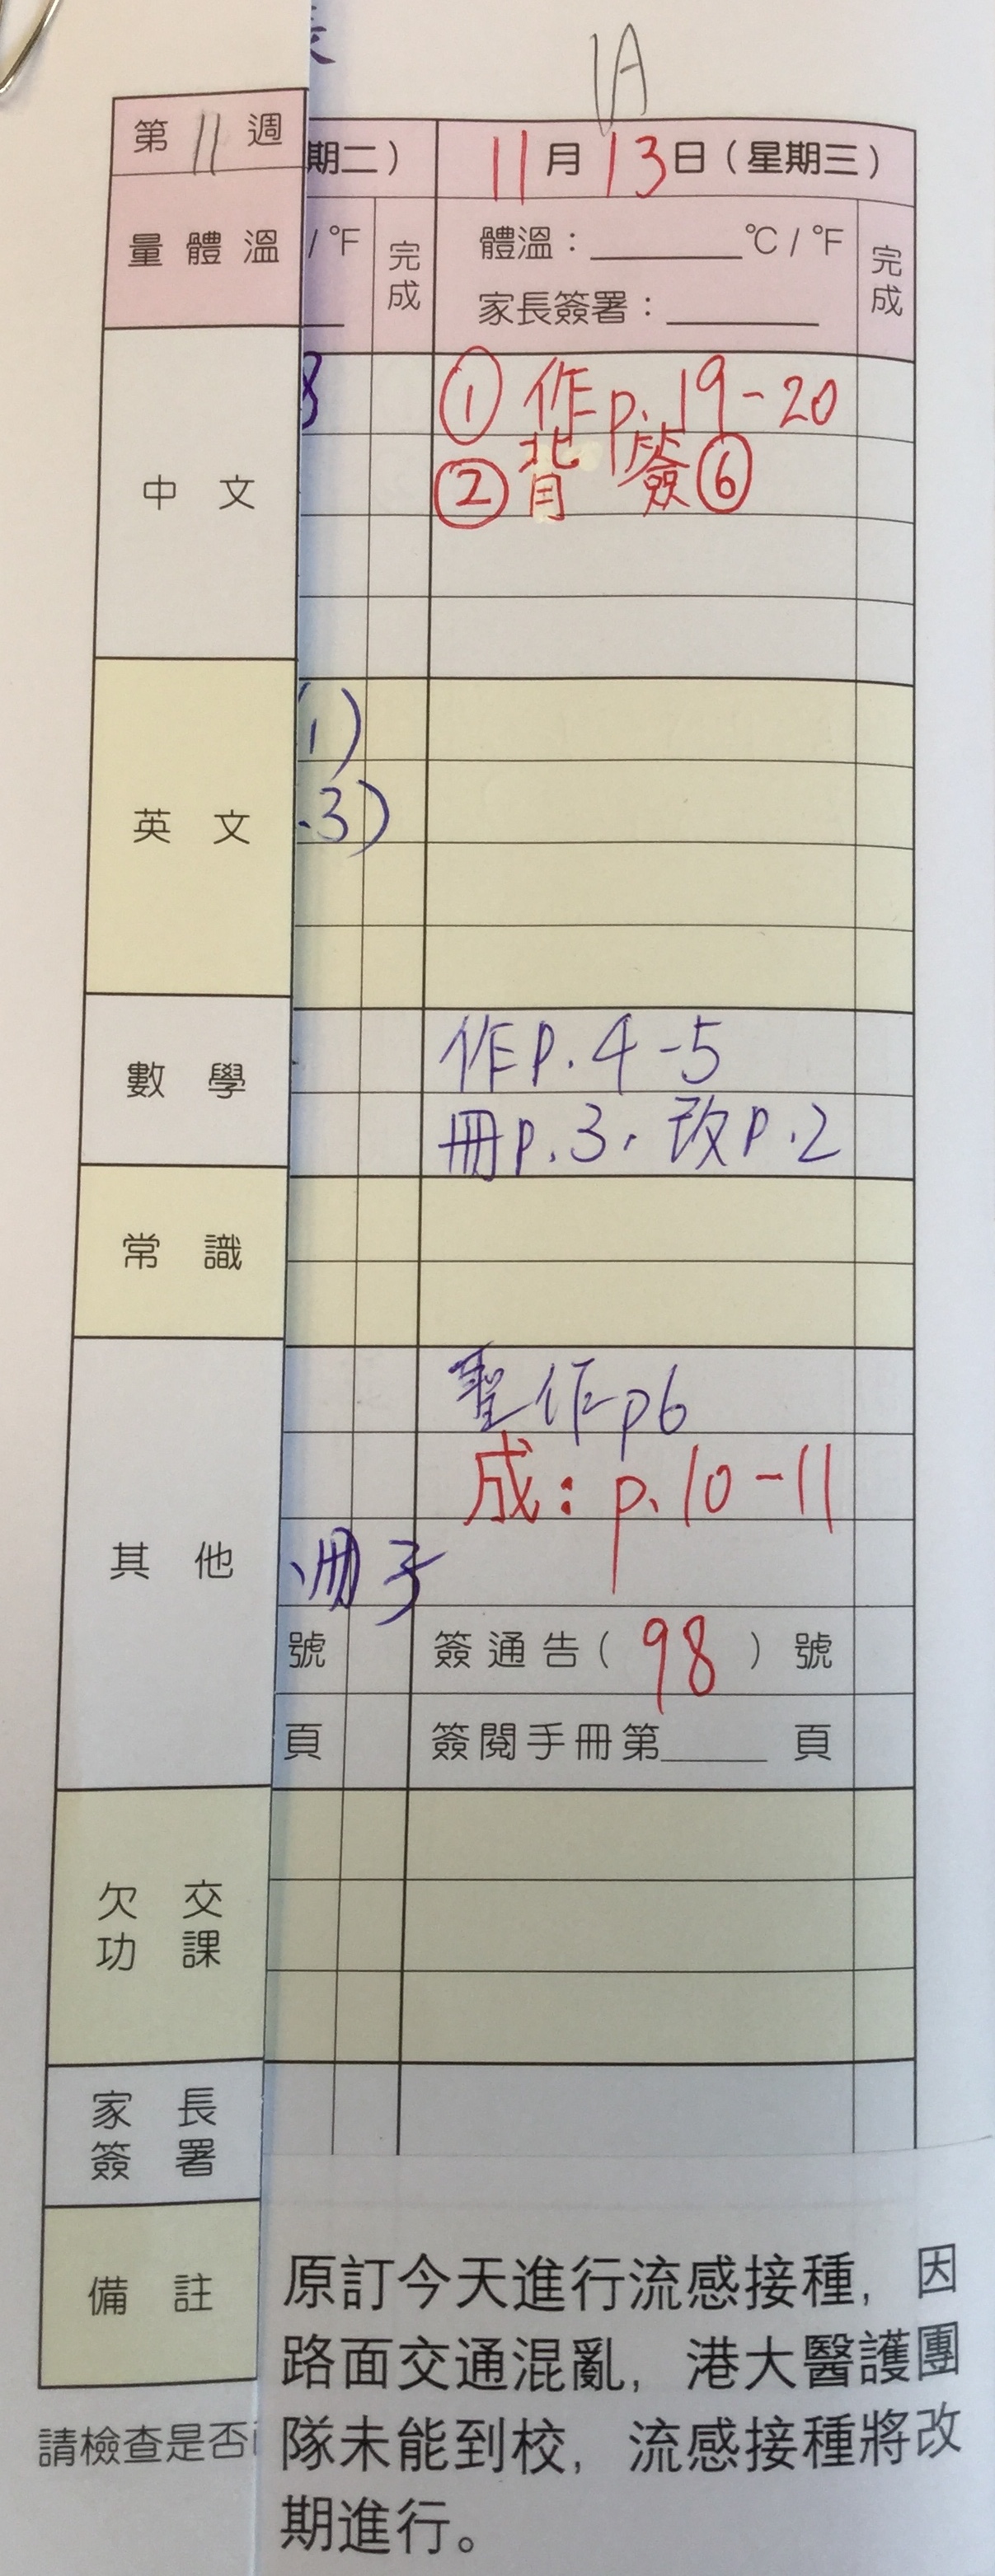 1A
第 11 週
期二）
11月13日（星期三）
量體溫
/ °F
完成
體溫：______°C / °F
家長簽署：______
完成
中文
8
① 作p.19-20
② 背 簽⑥
英文
1)
.3)
數學
作P.4-5
冊p.3，改P.2
常識
其他
聖作p6
成：p.10-11
、冊子
號
簽通告（ 98 ）號
頁
簽閱手冊第____ 頁
欠交
功課
家長
簽署
備註
原訂今天進行流感接種，因
路面交通混亂，港大醫護團
隊未能到校，流感接種將改
期進行。
請檢查是否